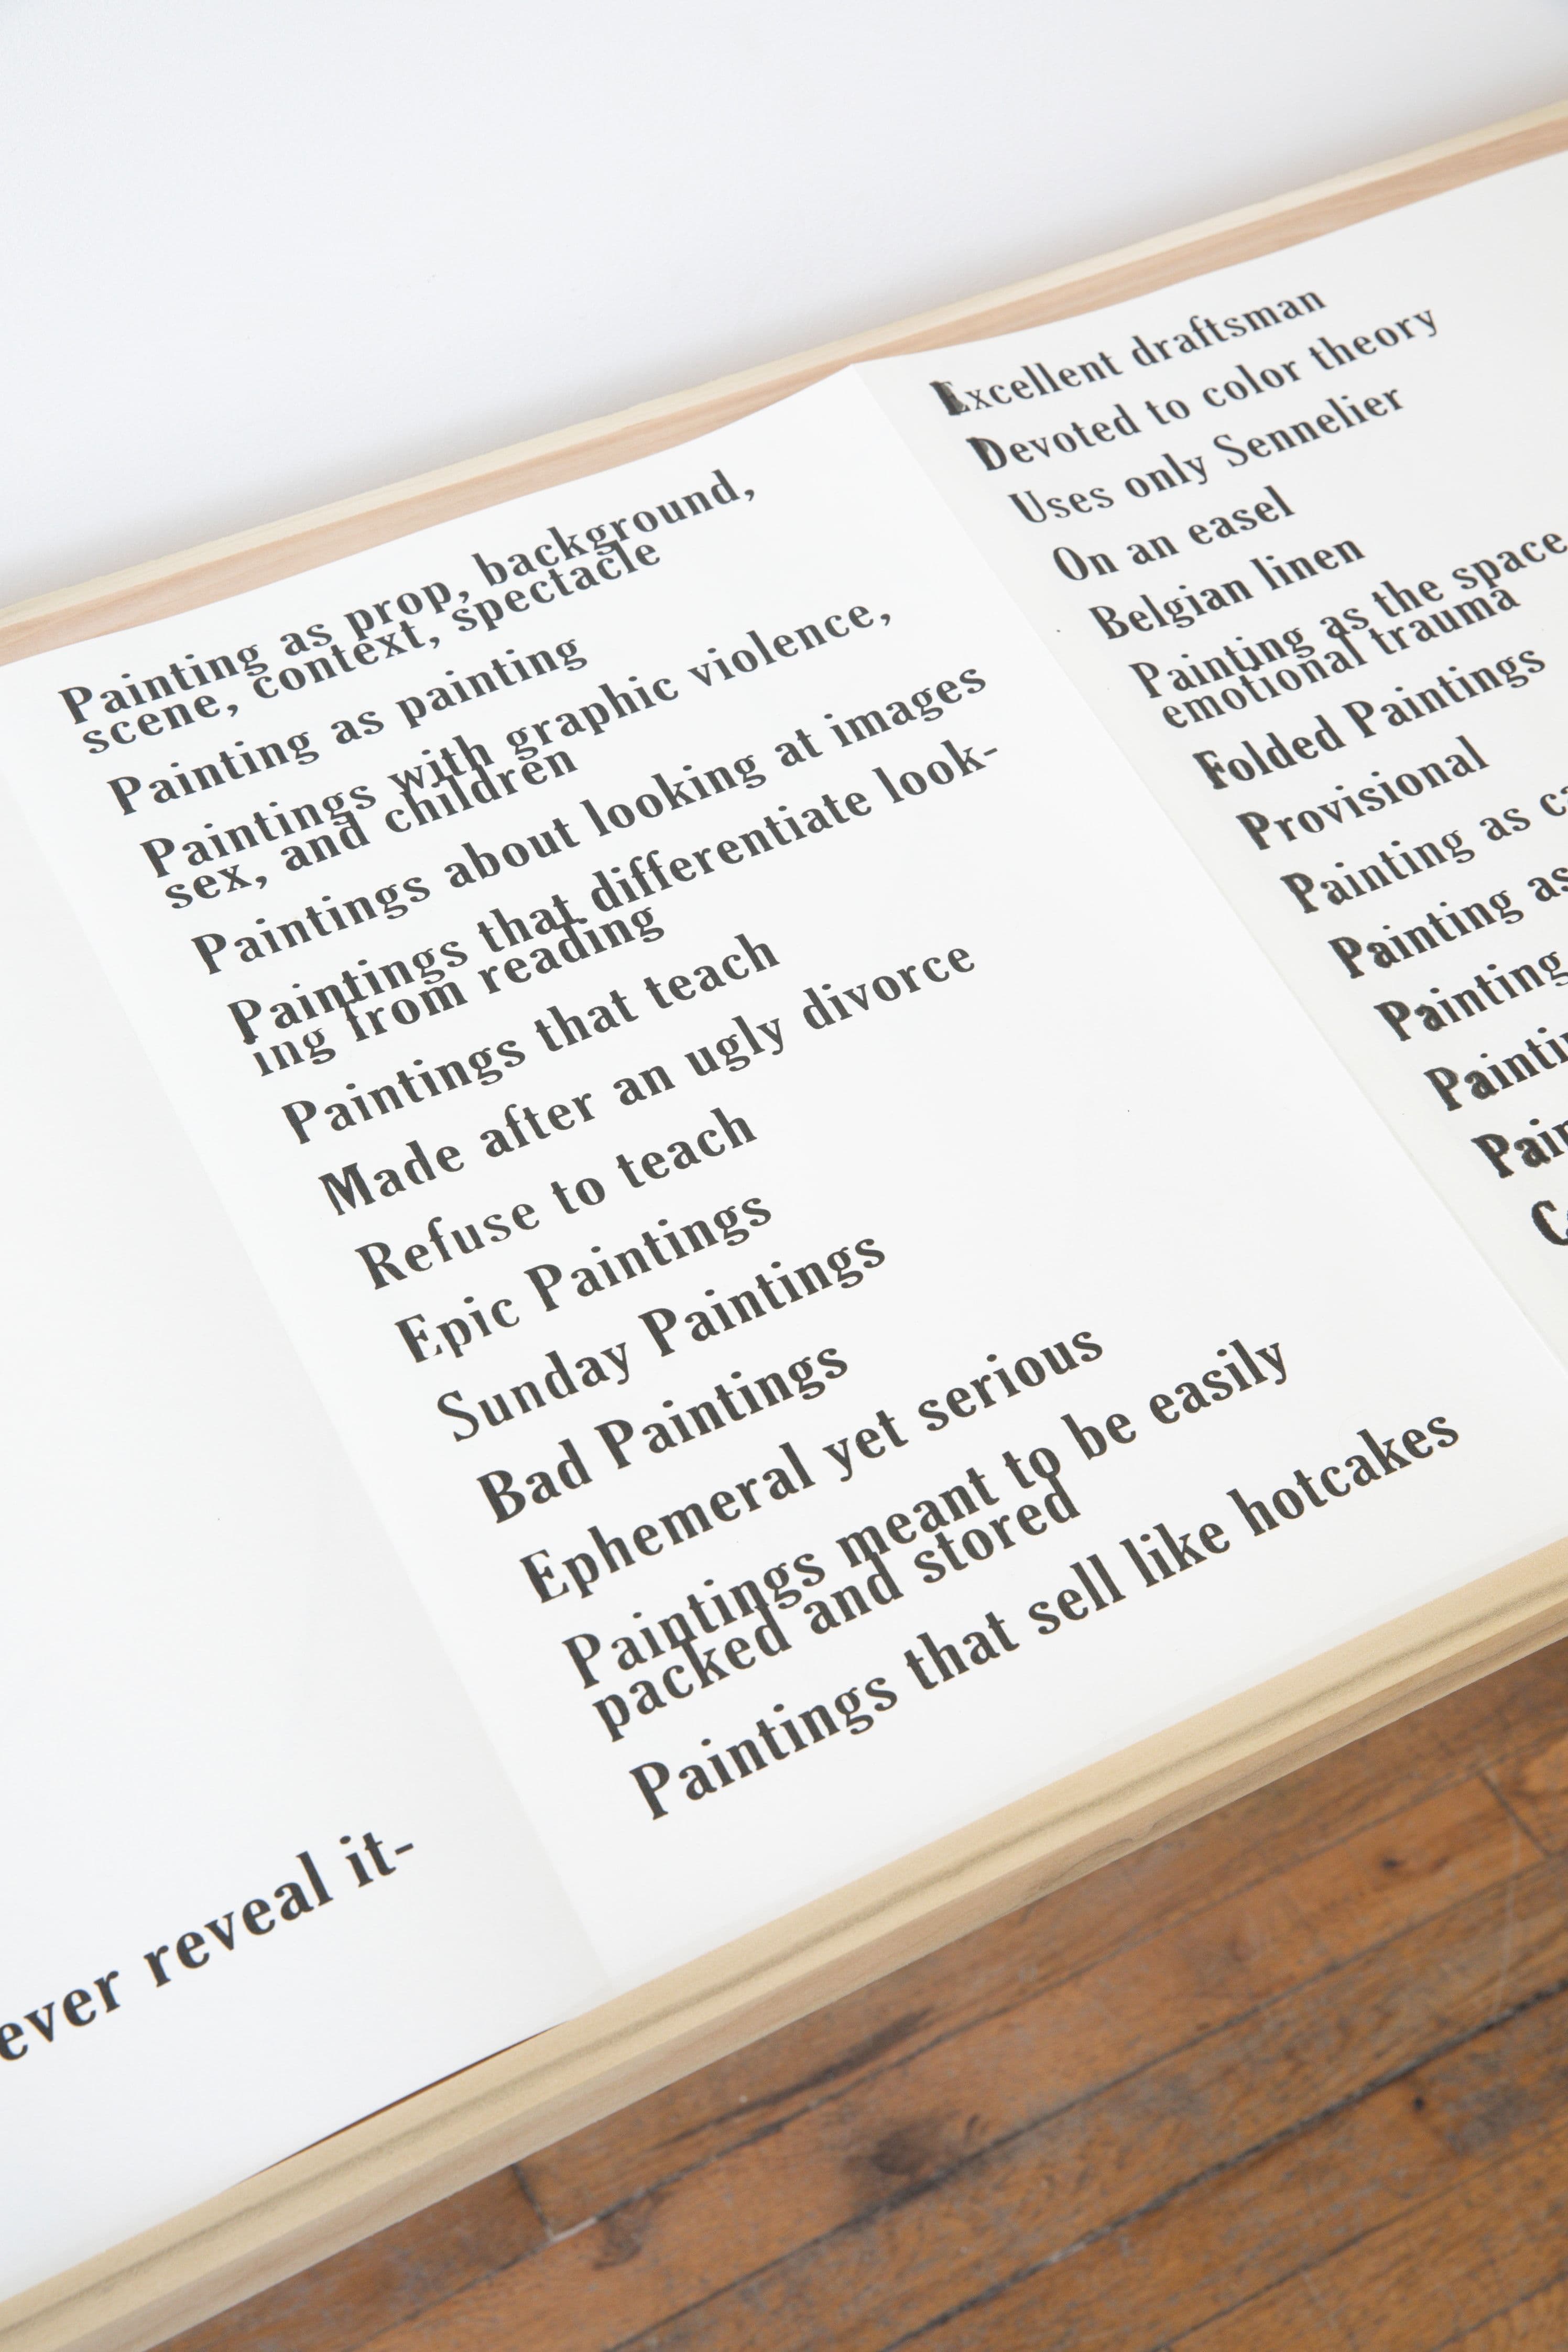 ever reveal it-
Painting as prop, background,
scene, context, spectacle
Painting as painting
Paintings with graphic violence,
sex, and children
Paintings about looking at images
Paintings that differentiate look-
ing from reading
Paintings that teach
Made after an ugly divorce
Refuse to teach
Epic Paintings
Sunday Paintings
Bad Paintings
Ephemeral yet serious
Paintings meant to be easily
packed and stored
Paintings that sell like hotcakes
Excellent draftsman
Devoted to color theory
Uses only Sennelier
On an easel
Belgian linen
Painting as the space
emotional trauma
Folded Paintings
Provisional
Painting as
Painting as
Painting